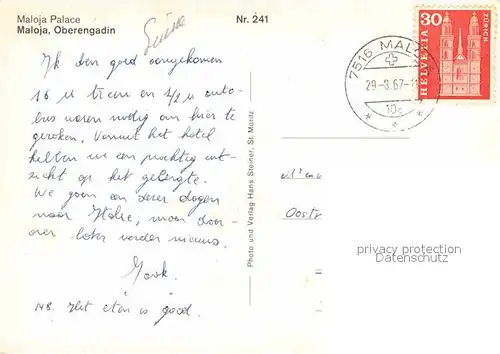 Maloja Palace
Maloja, Oberengadin
Nr. 241
Suisse
Ik ben goed aangekomen
16 u trein en 1/2 u auto-
bus waren nodig om hier te
geraken. Vanuit het hotel
hebben we een prachtig uit-
zicht op het gebergte.
We gaan een dezer dagen
naar Italië, maar daar-
over later verder nieuws.
N.B. Het eten is goed.
Photo und Verlag Hans Steiner, St. Moritz
7516 MALOJA
29-8.67-11
30
HELVETIA
ZÜRICH
Oostr
privacy protection
Datenschutz